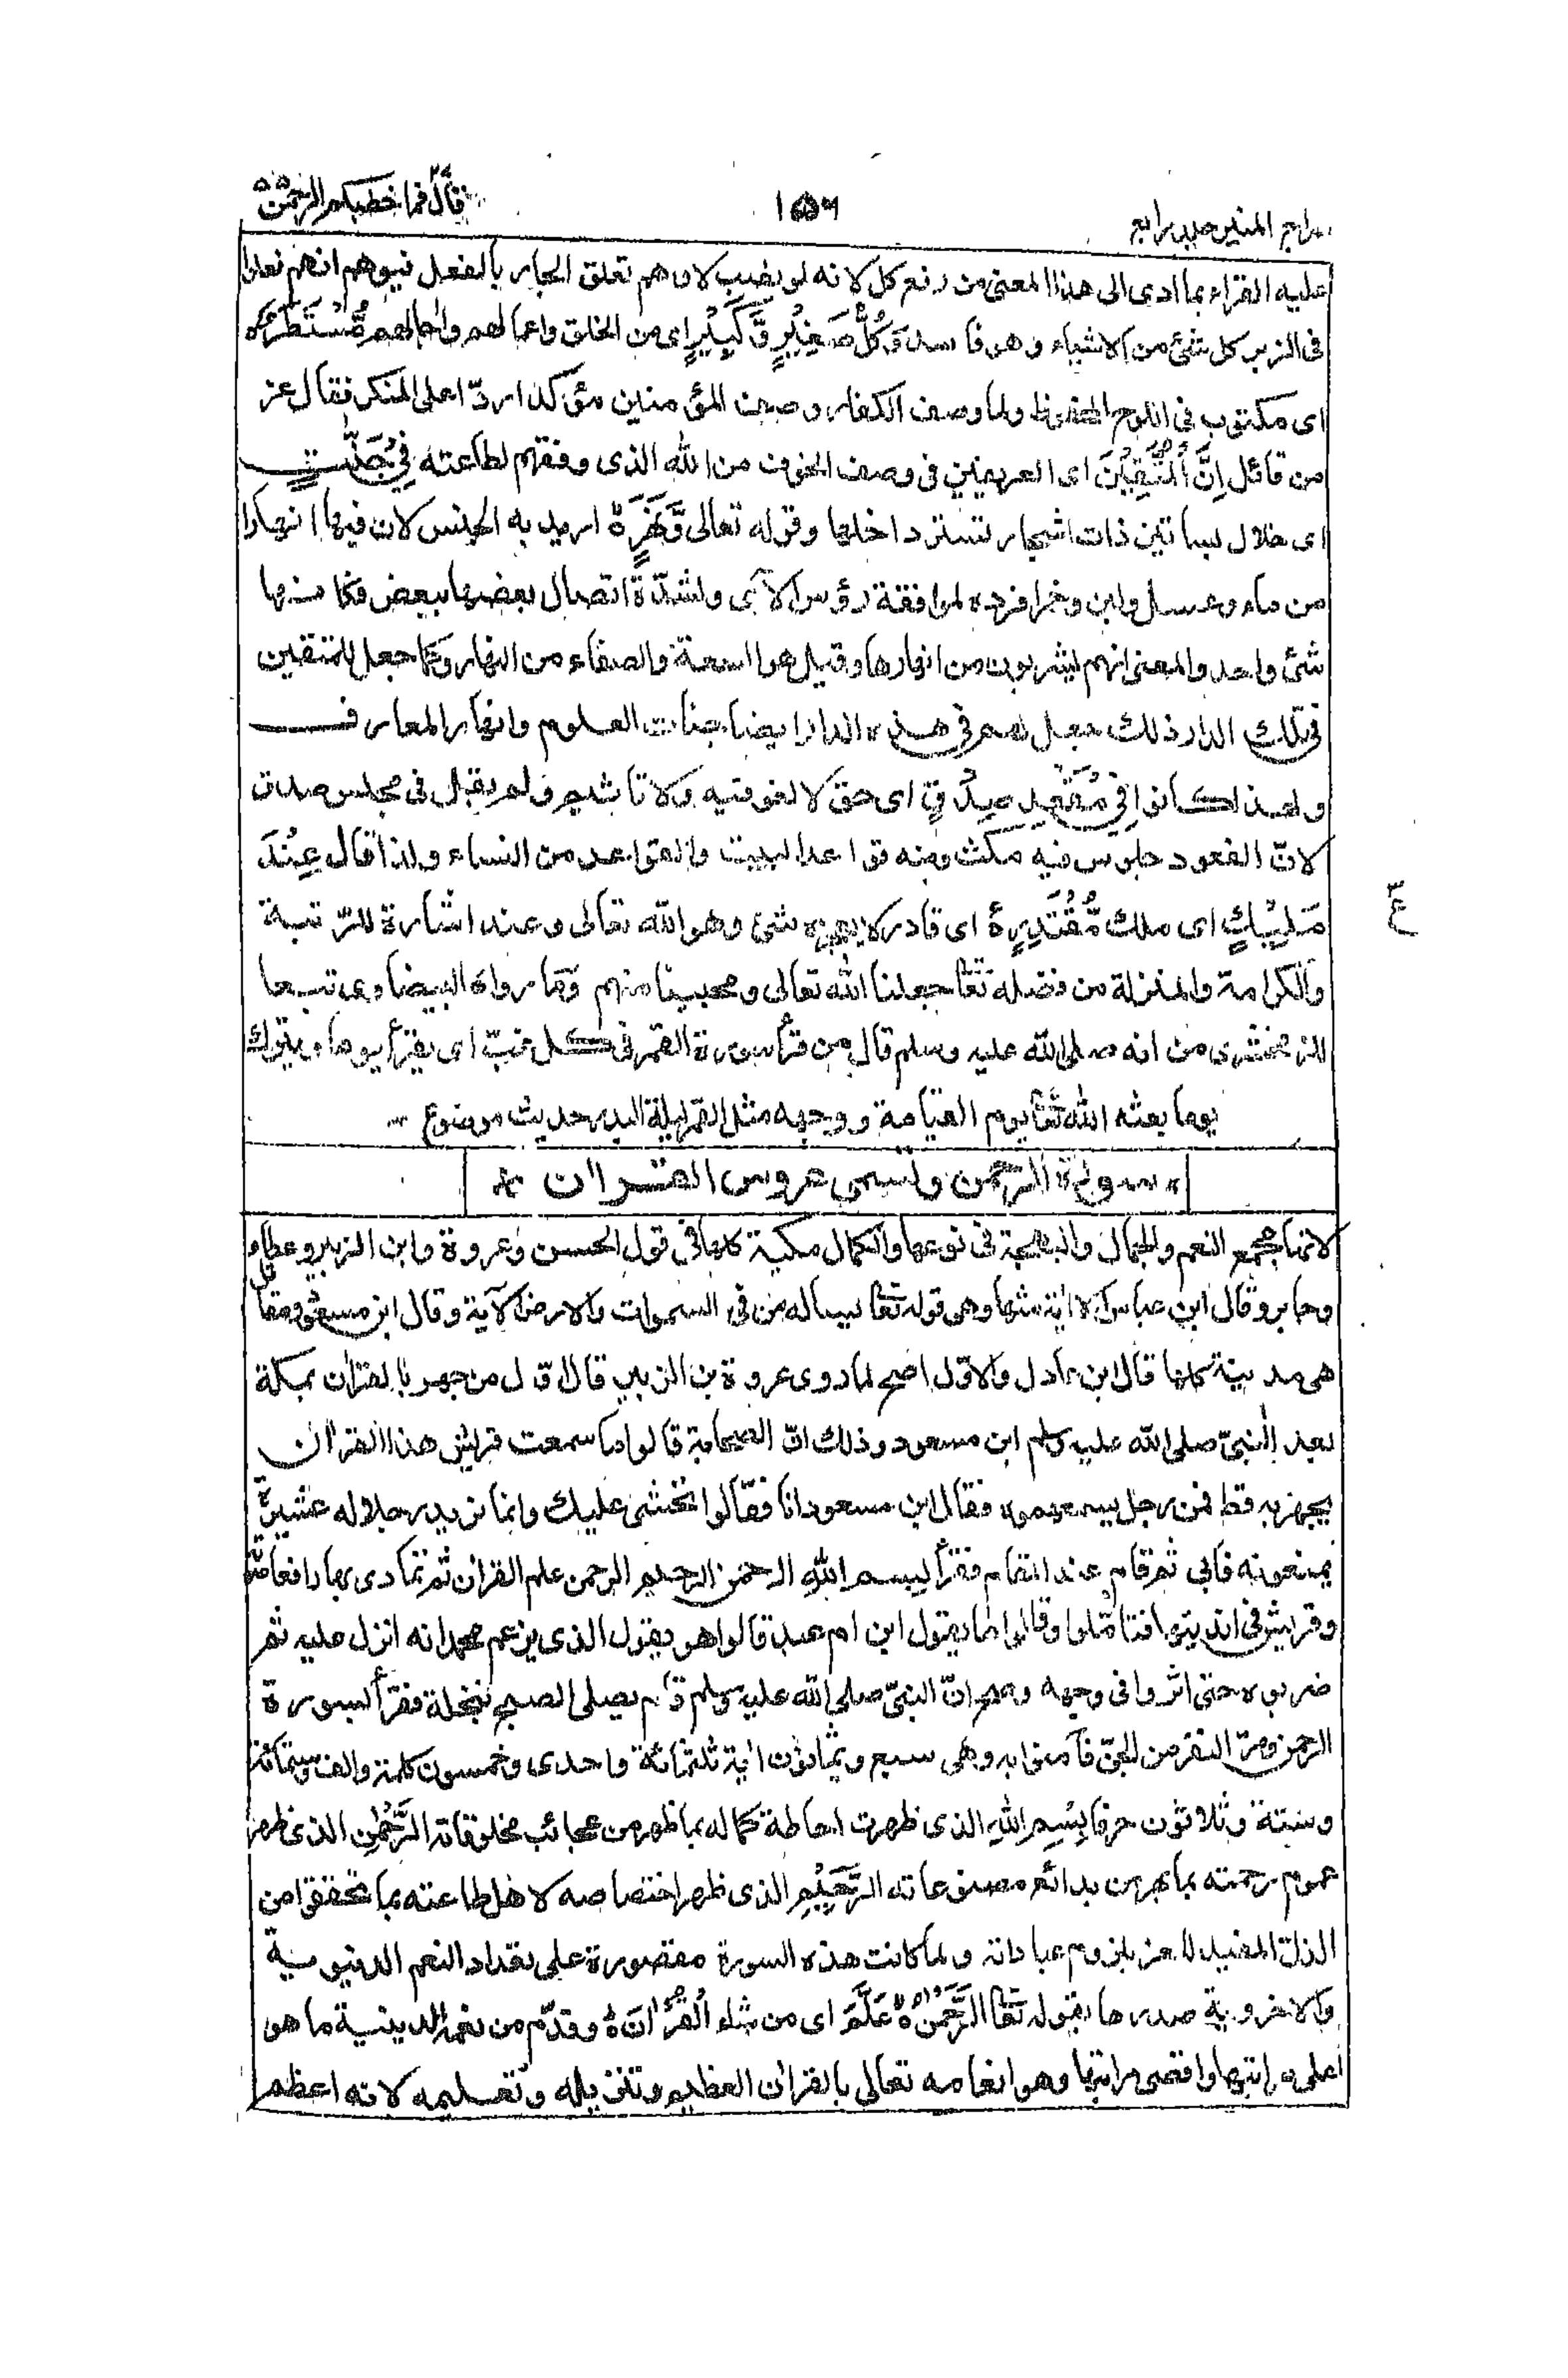 سراج المنير جلد رابع
١٥٦
قال فما خطبكم الرحمن ٥٥
عليه القراء بما ادى الى هذا المعنى من رفع كل لانه لو نصب لاوهم تعلق الجار بالفعل فيوهم انهم فعلوا
فى الزبر كل شئ من الاشياء وهو فاسد وَكُلُّ صَغِيْرٍ وَّكَبِيْرٍ اى من الخلق واعمالهم واجالهم مُّسْتَطَرٌ
اى مكتوب فى اللوح المحفوظ ولما وصف الكفار وصف المؤمنين مؤكدا ردّا على المنكر فقال عز
من قائل اِنَّ الْمُتَّقِيْنَ اى العريقين فى وصف الخوف من الله الذى وفقهم لطاعته فِيْ جَنّٰتٍ
اى خلال بساتين ذات اشجار تستر داخلها وقوله تعالى وَّنَهَرٍ اريد به الجنس لان فيها انهارا
من ماء وعسل ولبن وخمر افرده لموافقة رؤس الآى ولشدّة اتصال بعضها ببعض فكانها
شئ واحد والمعنى انهم يشربون من انهارها وقيل هو السعة والصفاء من النهار وكما جعل للمتقين
فى تلك الدار ذلك جعل لهم فى هذه الدار ايضا جنات العلوم وانهار المعارف
ولهذا كانوا فِيْ مَقْعَدِ صِدْقٍ اى حق لا لغو فيه ولا تاثيم ولم يقبل فى مجلس صدق
لانّ القعود جلوس فيه مكث ومنه قواعد البيت والقواعد من النساء ولذا قال عِنْدَ
مَلِيْكٍ اى ملك مُّقْتَدِرٍ اى قادر لا يعجزه شئ وهو الله تعالى وعند اشارة للرّتبة
والكرامة والمنزلة من فضله تعا جعلنا الله تعالى ومحبينا منهم وما رواه البيضاوى تبعا
للزمخشرى من انه صلى الله عليه وسلم قال من قرأ سورة القمر فى كل غبّ اى يقرأ يوما ويترك
يوما بعثه الله تعا يوم القيامة ووجهه مثل القمر ليلة البدر حديث موضوع
سورة الرحمن وتسمى عروس القران
لانها مجمع النعم والجمال والبهجة فى نوعها والكمال مكية كلها فى قول الحسن وعروة وابن الزبير وعطاء
وجابر وقال ابن عباس الا اية منها وهى قوله تعا يساله من فى السموات والارض الآية وقال ابن مسعود ومقاتل
هى مدينة كلها قال ابن عادل والاوّل اصح لما روى عروة بن الزبير قال اوّل من جهر بالقران بمكة
بعد النبىّ صلى الله عليه وسلم ابن مسعود وذلك انّ الصحابة قالوا ما سمعت قريش هذا القران
يجهر به قط فمن رجل يسمعهموه فقال ابن مسعود انا فقالوا نخشى عليك وانما نريد رجلا له عشيرة
يمنعونه فابى ثم قام عند المقام فقرأ بسم الله الرحمن الرحيم الرحمن علم القران ثم تمادى بها رافعا صوته
وقريش فى انديتها فتاملوا وقالوا ما يقول ابن ام عبد قالوا هو يقول الذى يزعم محمد انه انزل عليه ثم
ضربوه حتى اثروا فى وجهه وصح انّ النبىّ صلى الله عليه وسلم قام يصلى الصبح بنخلة فقرأ سورة
الرحمن ومرّ النفر من الجنّ فآمنوا به وهى سبع وثمانون اية ثلثمائة واحدى وخمسون كلمة والف وستمائة
وستة وثلاثون حرفا بِسْمِ اللهِ الذى ظهرت احاطة كماله بما ظهر من عجائب مخلوقاته الرَّحْمٰنِ الذى ظهر
عموم رحمته بما بهر من بدائع مصنوعاته الرَّحِيْمِ الذى ظهر اختصاصه لاهل طاعته بما تحققوا من
الذلّ المفيد للعز بلزوم عباداته ولما كانت هذه السورة مقصورة على تعداد النعم الدنيوية
والاخروية صدرها بقوله تعا الرَّحْمٰنُ عَلَّمَ اى من شاء الْقُرْاٰنَ وقدّم من نعمه الدينية ما هو
اعلى مراتبها واقصى مراتبها وهو انعامه تعالى بالقران العظيم وتنزيله وتعليمه لانه اعظم
ع ٣